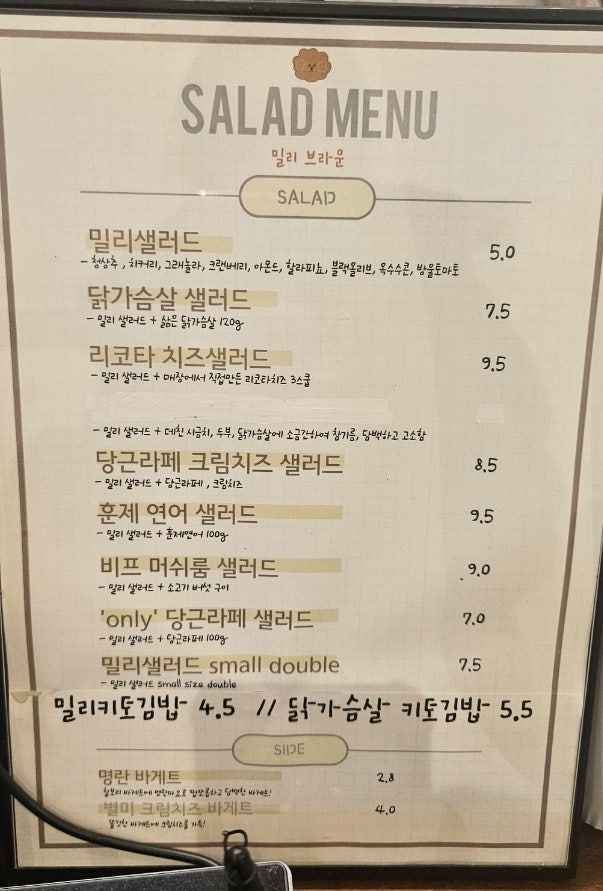 SALAD MENU
밀리 브라운
SALAD
밀리샐러드 5.0
- 청상추, 치커리, 그래놀라, 크랜베리, 아몬드, 할라피뇨, 블랙올리브, 옥수수콘, 방울토마토
닭가슴살 샐러드 7.5
- 밀리 샐러드 + 삶은 닭가슴살 120g
리코타 치즈샐러드 9.5
- 밀리 샐러드 + 매장에서 직접만든 리코타치즈 3스쿱
- 밀리 샐러드 + 데친 시금치, 두부, 닭가슴살에 소금간하여 참기름, 담백하고 고소함
당근라페 크림치즈 샐러드 8.5
- 밀리 샐러드 + 당근라페, 크림치즈
훈제 연어 샐러드 9.5
- 밀리 샐러드 + 훈제연어 100g
비프 머쉬룸 샐러드 9.0
- 밀리 샐러드 + 소고기 버섯 구이
'only' 당근라페 샐러드 7.0
- 밀리 샐러드 + 당근라페 100g
밀리샐러드 small double 7.5
- 밀리 샐러드 small size double
밀리키토김밥 4.5 // 닭가슴살 키토김밥 5.5
SIDE
명란 바게트 2.8
바게트에 명란마요로 짭짤하고 담백한 바게트!
별미 크림치즈 바게트 4.0
바게트에 크림치즈를 가득!